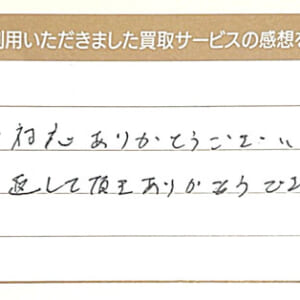 利用いただきました買取サービスの感想を
対応ありがとうござい
返して頂きありがとうござ